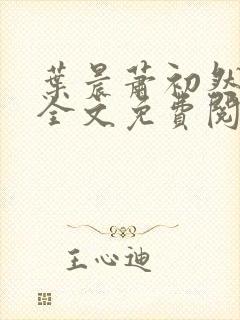 葉晨蕭初然
全文免費閱
王心迪